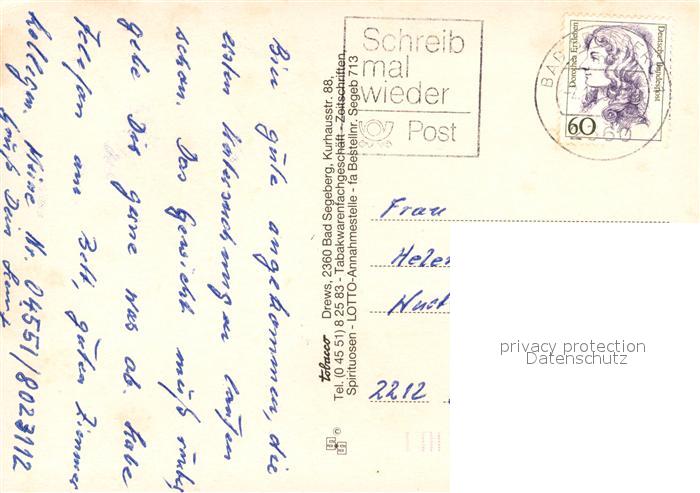 Bin gute angekommen, die
ersten Untersuchungen laufen
schon. Das Gewicht muß runter
gebe Dir gerne was ab. habe
Telefon am Bett, guten Zimmer
kollegin. Meine Nr. 04551/8023112
Gruß Dein
tobacco Drews, 2360 Bad Segeberg, Kurhausstr. 88,
Tel. (0 45 51) 8 25 83 - Tabakwarenfachgeschäft - Zeitschriften,
Spirituosen - LOTTO-Annahmestelle - fa Bestellnr. Segeb 713
©
Schreib
mal
wieder
Post
BAD
Dorothea Erxleben
Deutsche Bundespost
60
Frau
Helen
2212
privacy protection
Datenschutz